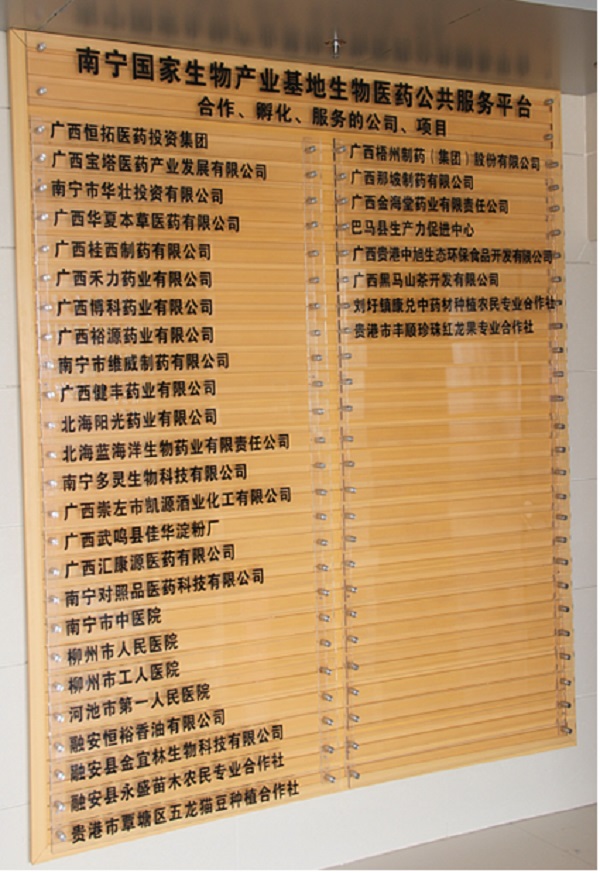 南宁国家生物产业基地生物医药公共服务平台
合作、孵化、服务的公司、项目
广西恒拓医药投资集团
广西宝塔医药产业发展有限公司
南宁市华壮投资有限公司
广西华夏本草医药有限公司
广西桂西制药有限公司
广西禾力药业有限公司
广西博科药业有限公司
广西裕源药业有限公司
南宁市维威制药有限公司
广西健丰药业有限公司
北海阳光药业有限公司
北海蓝海洋生物药业有限责任公司
南宁多灵生物科技有限公司
广西崇左市凯源酒业化工有限公司
广西武鸣县佳华淀粉厂
广西汇康源医药有限公司
南宁对照品医药科技有限公司
南宁市中医院
柳州市人民医院
柳州市工人医院
河池市第一人民医院
融安恒裕香油有限公司
融安县金宜林生物科技有限公司
融安县永盛苗木农民专业合作社
贵港市覃塘区五龙猫豆种植合作社
广西梧州制药（集团）股份有限公司
广西那坡制药有限公司
广西金海堂药业有限责任公司
巴马县生产力促进中心
广西贵港中旭生态环保食品开发有限公司
广西黑马山茶开发有限公司
刘圩镇康兑中药材种植农民专业合作社
贵港市丰顺珍珠红龙果专业合作社